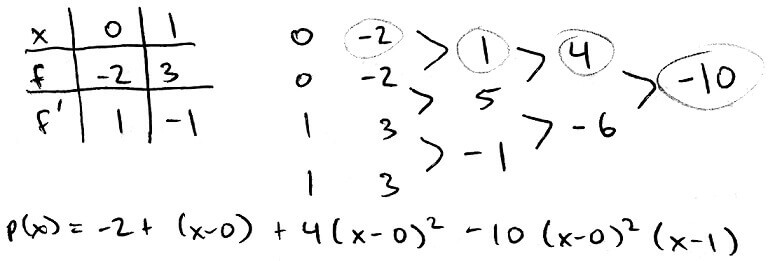 x 0 1
f -2 3
f' 1 -1
0 -2 > 1 > 4 > -10
0 -2 > 5 > -6
1 3 > -1
1 3
p(x) = -2 + (x-0) + 4(x-0)² -10 (x-0)² (x-1)